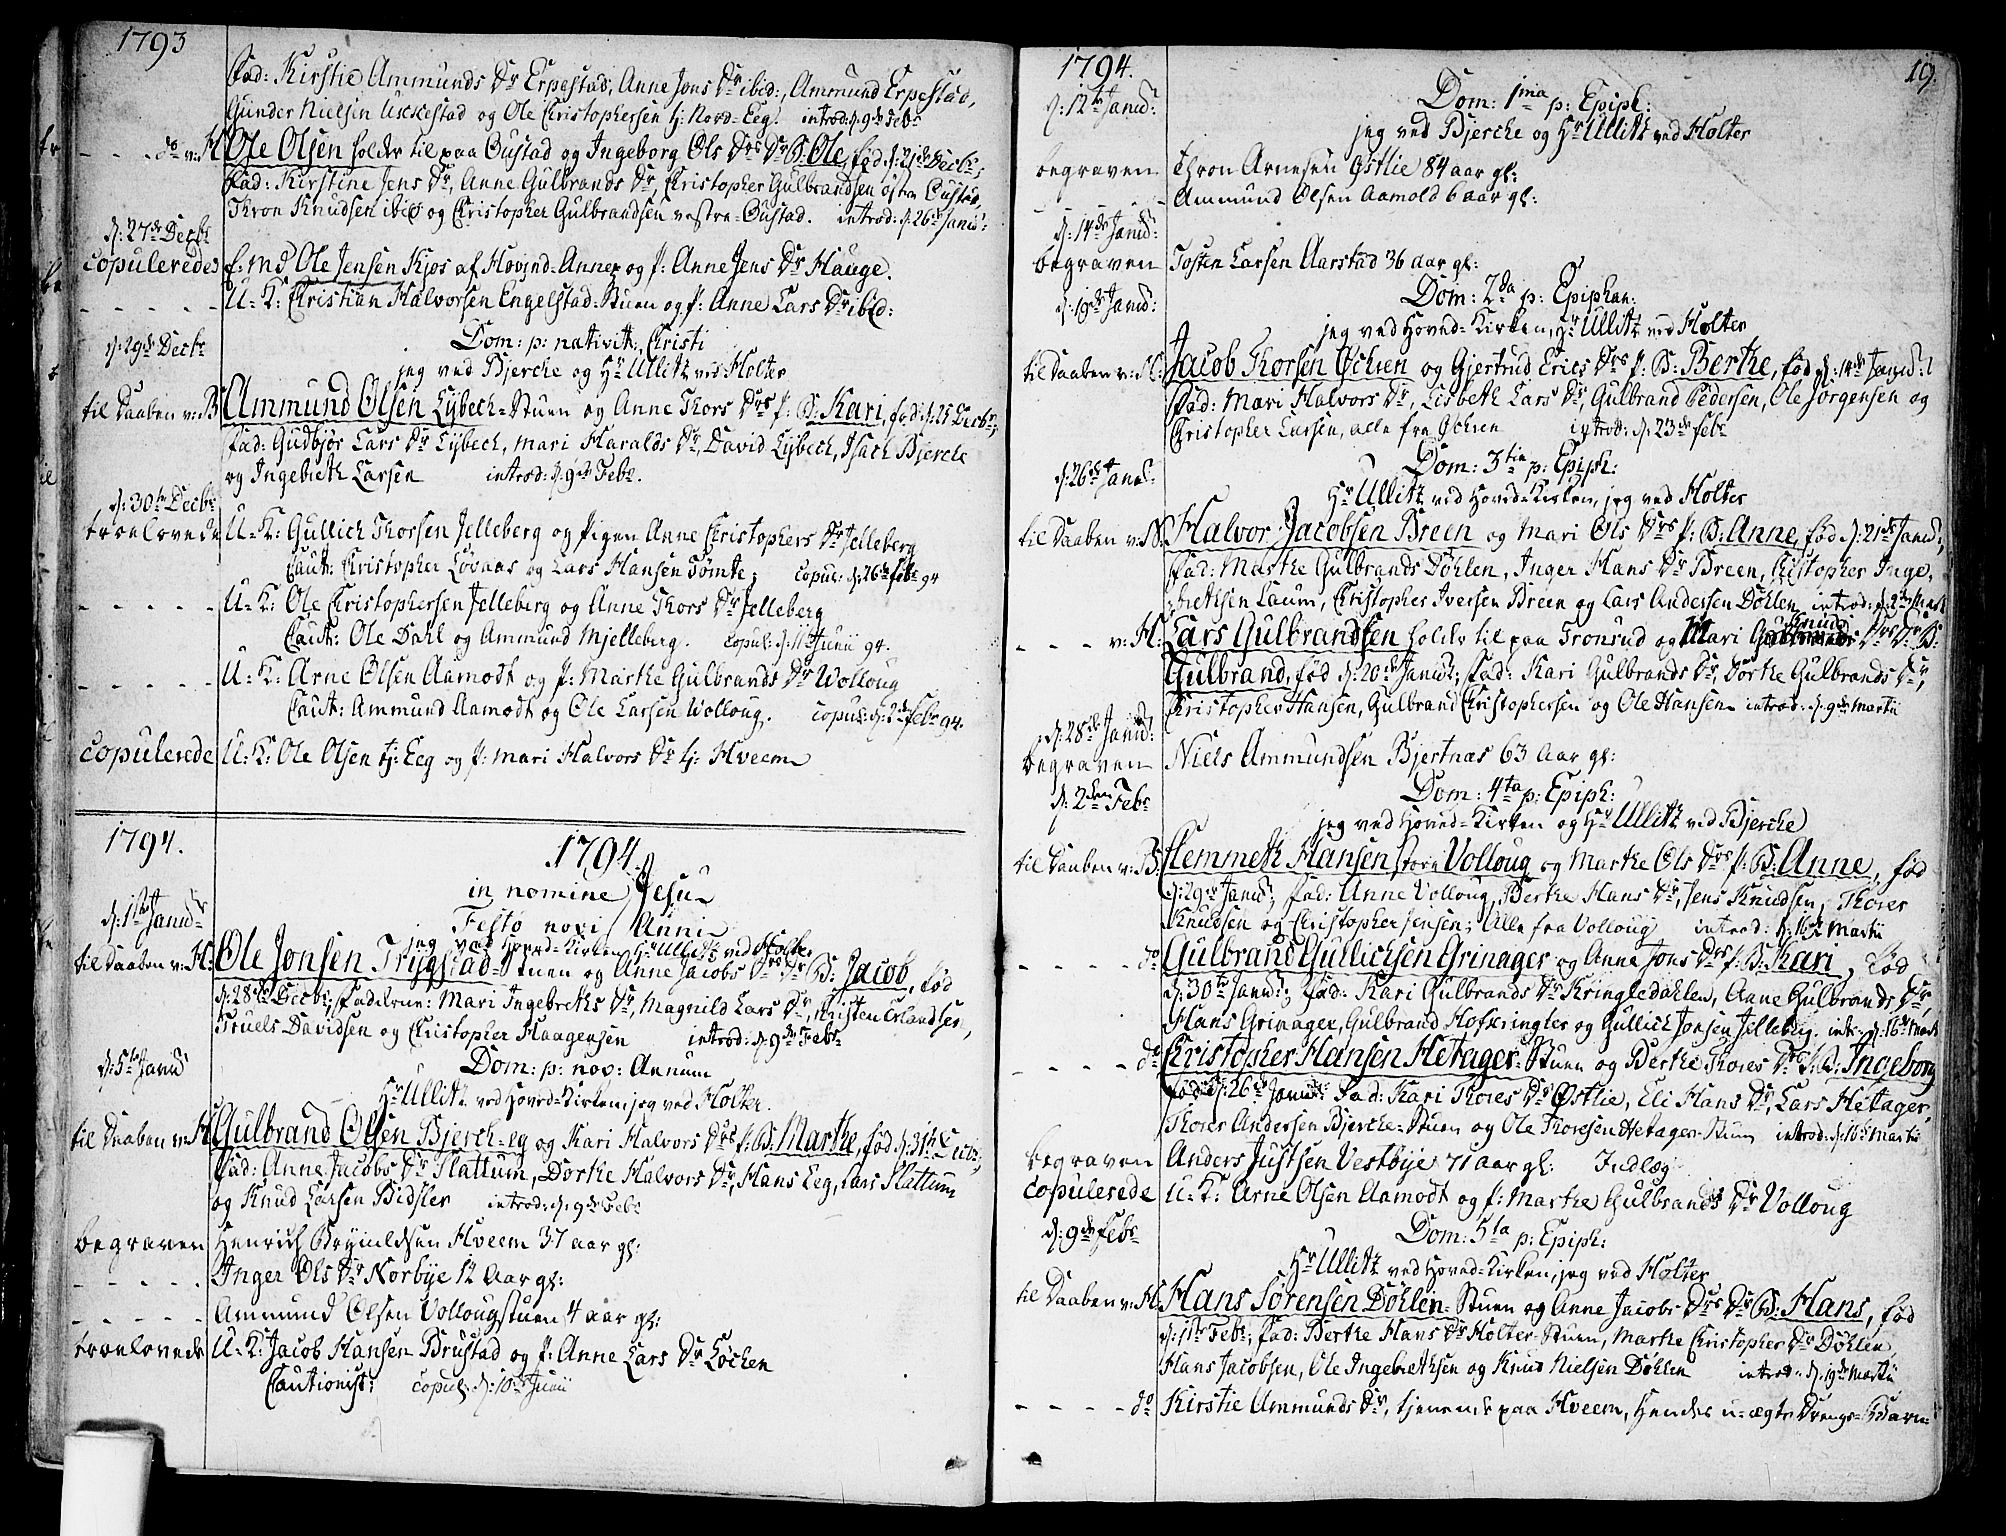 1793
Fad: Kirstie Ammunds Dr Erpestad, Anne Jons Dr ibid:, Ammund Erpestad,
Gunder Nielsen Ukkestad og Ole Christophersen tj: Nord=Eeg. introd: d: 9de Febr
- - - do v: H Ole Olsen holder til paa Gustad og Ingeborg Ols Drs Dr B: Ole, fød d: 21de Decbr;
Fad: Kirstine Jens Dr, Anne Gulbrands Dr, Christopher Gulbrandsen østre Gustad,
Thron Knudsen ibid og Christopher Gulbrandsen vestre=Gustad. introd: d: 26de Janud:
d: 27de Decbr
copulerede f: md Ole Jensen Kjos af Hovind=Annex og P: Anne Jens Dr Hauge.
- - - - - U=K: Christian Halvorsen Engelstad=Stuen og P: Anne Lars Dr ibid:
d: 29de Decbr
Dom: p: nativit: Christi
jeg ved Bjercke og Hr Ullitz ved Holter
til Daaben v: B Ammund Olsen Lybech=Stuen og Anne Thors Drs P: B: Kari, fød d: 25 Decbr;
Fad: Gudbjør Lars Dr Lybech, Mari Haralds Dr, David Lybech, Isach Bjercke
og Ingebreth Larsen introd: d: 9de Febr.
d: 30te Decbr
trolovede U=K: Gullich Thorsen Jelleberg og Pigen Anne Christophers Dr Jelleberg
Caut: Christopher Lovaas og Lars Hansen Tømte; copul: d: 26de Febr 94
- - - - - U=K: Ole Christophersen Jelleberg og Anne Thors Dr Jelleberg
Caut: Ole Dahl og Ammund Mjelleberg. copul: d: 11te Junii 94.
- - - - - U=K: Arne Olsen Aamodt og P: Marthe Gulbrands Dr Wolloug
Caut: Ammund Aamodt og Ole Larsen Wolloug. copul: d: 2de Febr 94.
copulerede U=K: Ole Olsen tj: Eeg og P: Mari Halvors Dr tj: Hveem
1794.
1794.
in nomine Jesu
d: 1ste Janud:
Festo novi Anni
jeg ved Hoved=Kirken Hr Ullitz ved Holter
til Daaben v: H: Ole Jonsen Trygstad=Stuen og Anne Jacobs Drs Dr B: Jacob, fød
d: 28de Decbr; Fadderne: Mari Ingebreths Dr, Magnild Lars Dr, Christen Erlandsen,
Truels Davidsen og Christopher Haagensen introd: d: 9de Febr
d: 5te Janud
Dom: p: nov: Annum
Hr Ullitz ved Hoved=Kirken, jeg ved Holter.
til Daaben v: H Gulbrand Olsen Bjerch=eg og Kari Halvors Drs P: B: Marthe, fød d: 31te Decbr;
Fad: Anne Jacobs Dr Slattum, Dorthe Halvors Dr, Hans Eeg, Lars Slattum
og Knud Larsen Bidsler introd: d: 9de Febr
begraven Henrich Brynildsen Hveem 37 aar gl:
- - - - - Inger Ols Dr Norbye 12 Aar gl:
- - - - - Ammund Olsen Vollougstuen 4 aar gl:
trolovede U=K: Jacob Hansen Brustad og P: Anne Lars Dr Lochen
Cautionist: copul: d: 10de Junii
1794.
19.
d: 12te Janud:
Dom: 1ma p: Epiph:
jeg ved Bjercke og Hr Ullitz ved Holter
begraven Thron Arnesen Østlie 84 aar gl:
- - - - - Ammund Olsen Aamold 6 aar gl:
d: 14de Janud:
begraven Tosten Larsen Aarstad 36 aar gl:
d: 19de Janud:
Dom: 2da p: Epiphan:
jeg ved Hoved=Kirken, Hr Ullitz ved Holter
til Daaben v: H: Jacob Thorsen Ochren og Gjertrud Erics Drs P: B: Berthe, fød d: 14de Janud:
Fad: Mari Halvors Dr, Lisbeth Lars Dr, Gulbrand Pedersen, Ole Jørgensen og
Christopher Larsen, alle fra Ochren introd: d: 23de Febr
d: 26de Janud:
Dom: 3tia p: Epiph:
Hr Ullitz ved Hoved=Kirken, jeg ved Holter
til Daaben v: N: Halvor Jacobsen Breen og Mari Ols Drs P: B: Anne, fød d: 21de Janud:,
Fad: Marthe Gulbrands Døhlen, Inger Hans Dr Breen, Christopher Inge,
brethsen Laum, Christopher Iversen Breen og Lars Andersen Døhlen introd: d: 2den Mart
- - - v: H: Lars Gulbrandsen holder til paa Tronrud og Mari Knuds Drs Dr B:
Gulbrand, fød d: 20de Janud; Fad: Kari Gulbrands Dr, Dorthe Gulbrands Dr,
Christopher Hansen, Gulbrand Christophersen og Ole Hansen introd: d: 9de Martii
d: 28de Janud:
begraven Niels Ammundsen Bjertnæs 63 Aar gl:
d: 2den Febr
Dom: 4ta p: Epiph:
jeg ved Hoved=Kirken og Hr Ullitz ved Bjercke
til Daaben v: B: Clemmeth Hansen store Volloug og Marthe Ols Drs P: B: Anne, fød
d: 29de Janud; Fad: Anne Volloug, Berthe Hans Dr, Jens Knudsen, Thorer
Knudsen og Christopher Jensen; Alle fra Volloug introd: d: 16de Martii
- - - - do Gulbrand Gullichsen Grinager og Anne Jons Drs P: B: Kari, fød
d: 30te Janud; Fad: Kari Gulbrands Dr Kringledahlen, Anne Gulbrands Dr,
Hans Grinager, Gulbrand Hofkringler og Gullich Jonsen Jelleberg. intr: d: 16de Mart
- - - - do Christopher Hansen Hetager=Stuen og Berthe Thores Drs P: B: Ingeborg
fød d: 26de Janud: Fad: Kari Thores Dr Østlie, Eli Hans Dr, Lars Hetager,
Thorer Andersen Bjercke=Stuen og Ole Thoresen Hetager=Stuen introd: d: 16de Martii
begraven Anders Justsen Vestbye 71 Aar gl: Indlæg
copulerede U=K: Arne Olsen Aamodt og P: Marthe Gulbrands Dr Volloug
d: 9de Febr
Dom: 5ta p: Epiph:
Hr Ullitz ved Hoved=Kirken, jeg ved Holter
til Daaben v: H: Hans Sørensen Døhlen=Stuen og Anne Jacobs Drs Dr B: Hans, fød
d: 1ste Febr; Fad: Berthe Hans Dr Holter=Stuen, Marthe Christopher Dr Døhlen,
Hans Jacobsen, Ole Ingebrethsen og Knud Nielsen Døhlen introd: d: 19de Martii
- - - - do Kirstie Ammunds Dr, tjenende paa Hveem, Hendes u=ægte Drenge=Barn